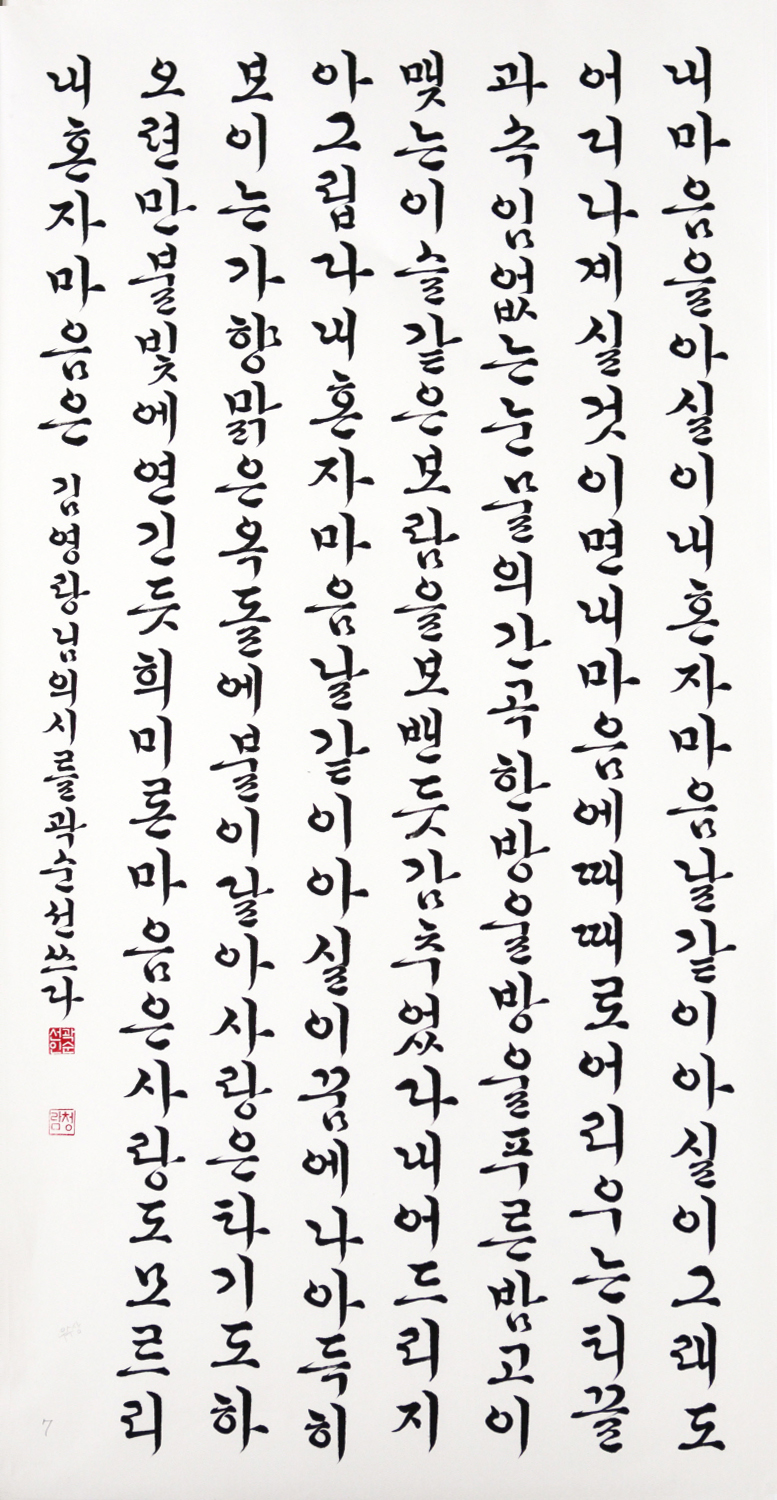 내마음을아실이내혼자마음날같이아실이그래도
어디나계실것이면내마음에때때로어리우는티끌
과속임없는눈물의간곡한방울방울푸른밤고이
맺는이슬같은보람을보밴듯감추었다내어드리지
아그립다내혼자마음날같이아실이꿈에나아득히
보이는가향맑은옥돌에불이달아사랑은타기도하
오련만불빛에연긴듯희미론마음은사랑도모르리
내혼자마음은 김영랑님의시를곽순선쓰다
곽순선인
청람
7